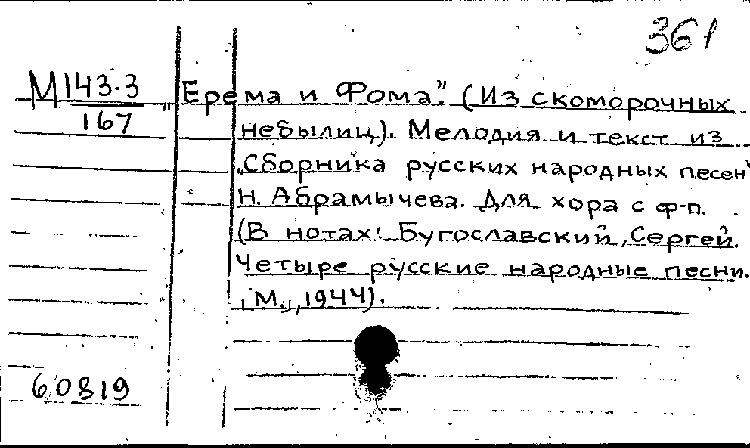 361
М143.3
167
„Ерема и Фома". (Из скоморочных
небылиц). Мелодия и текст из
„Сборника русских народных песен"
Н. Абрамычева. Для хора с ф-п.
(В нотах: Бугославский, Сергей.
Четыре русские народные песни.
М., 1944).
60819